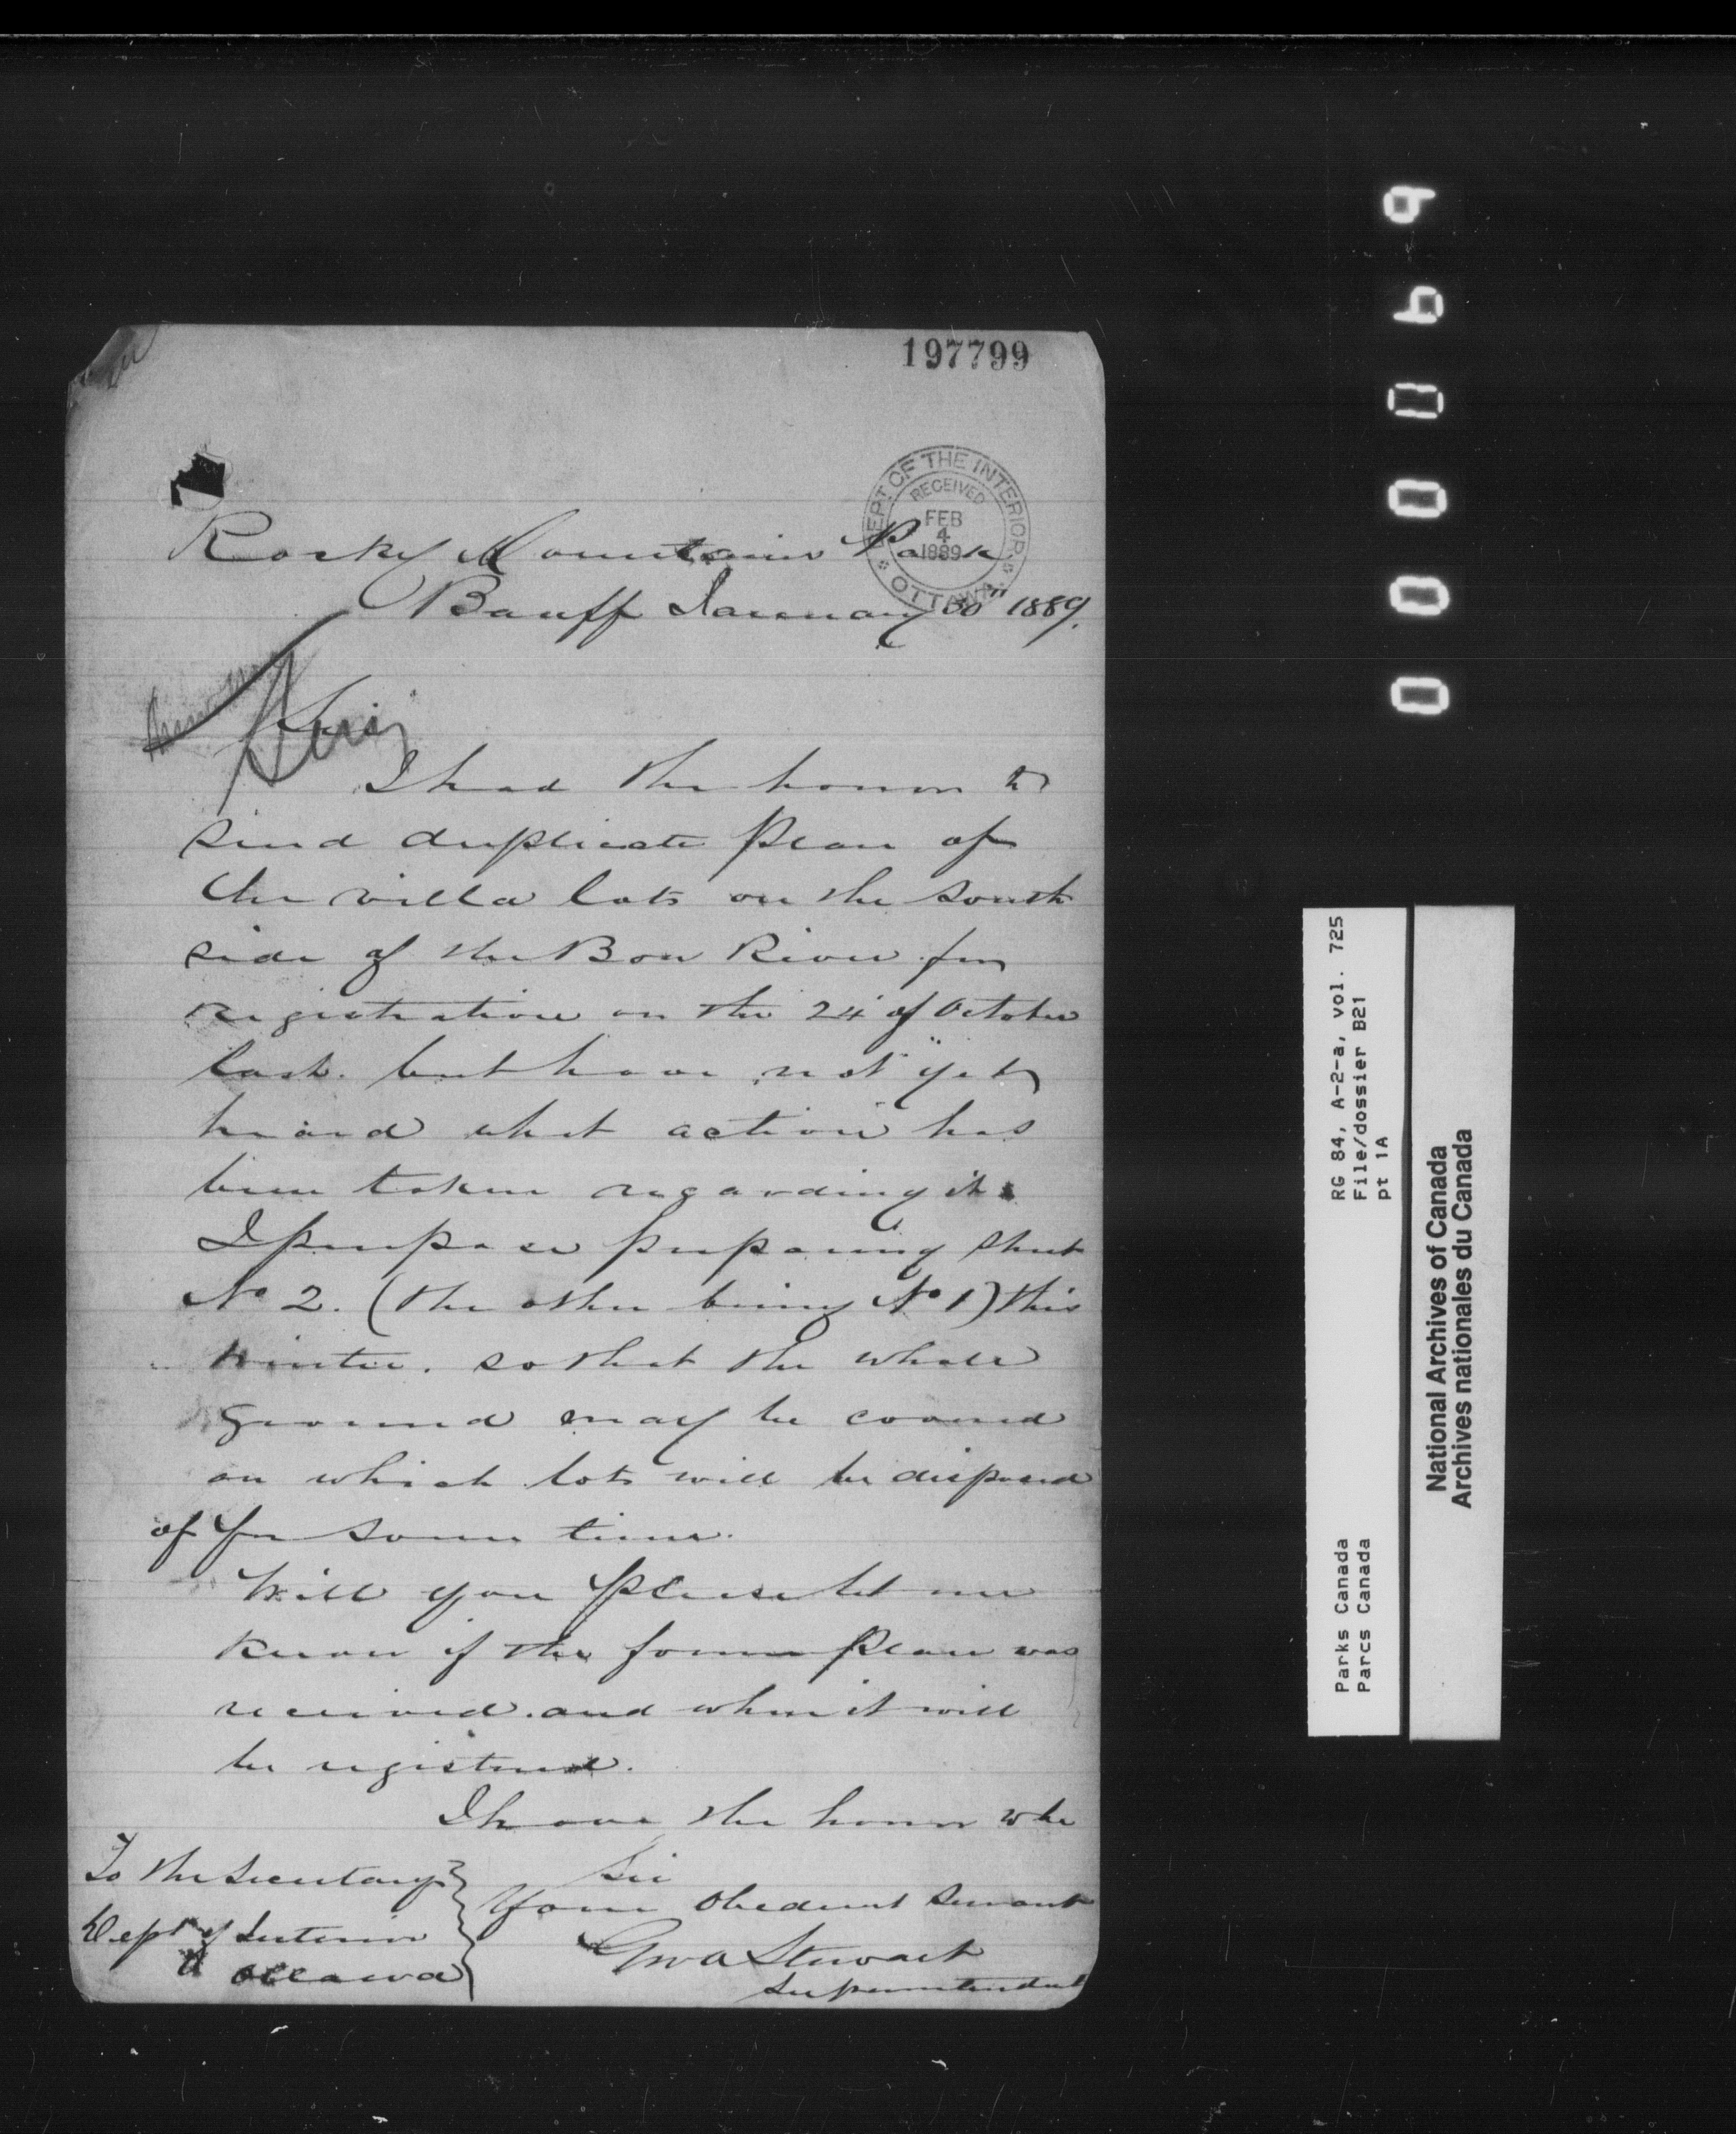 197799
DEPT. OF THE INTERIOR
RECEIVED
FEB
4
1889
OTTAWA
Rocky Mountain Park
Banff January 30" 1889.
Sir
I had the honor to
send duplicate plan of
the villa lots on the south
side of the Bow River for
registration on the 24" of October
last. but have not yet
heard what action has
been taken regarding it.
I purpose preparing sheet
No 2. (the other being No 1) this
winter. so that the whole
ground may be covered
on which lots will be disposed
of for some time.
Will you please let me
know if the former plan was
received. and when it will
be registered.
I have the honor to be
Sir
Your obedient servant
Geo A Stewart
Superintendent
To the Secretary
Dept of Interior
Ottawa
000069
RG 84, A-2-a, vol. 725
File/dossier B21
pt 1A
Parks Canada
Parcs Canada
National Archives of Canada
Archives nationales du Canada